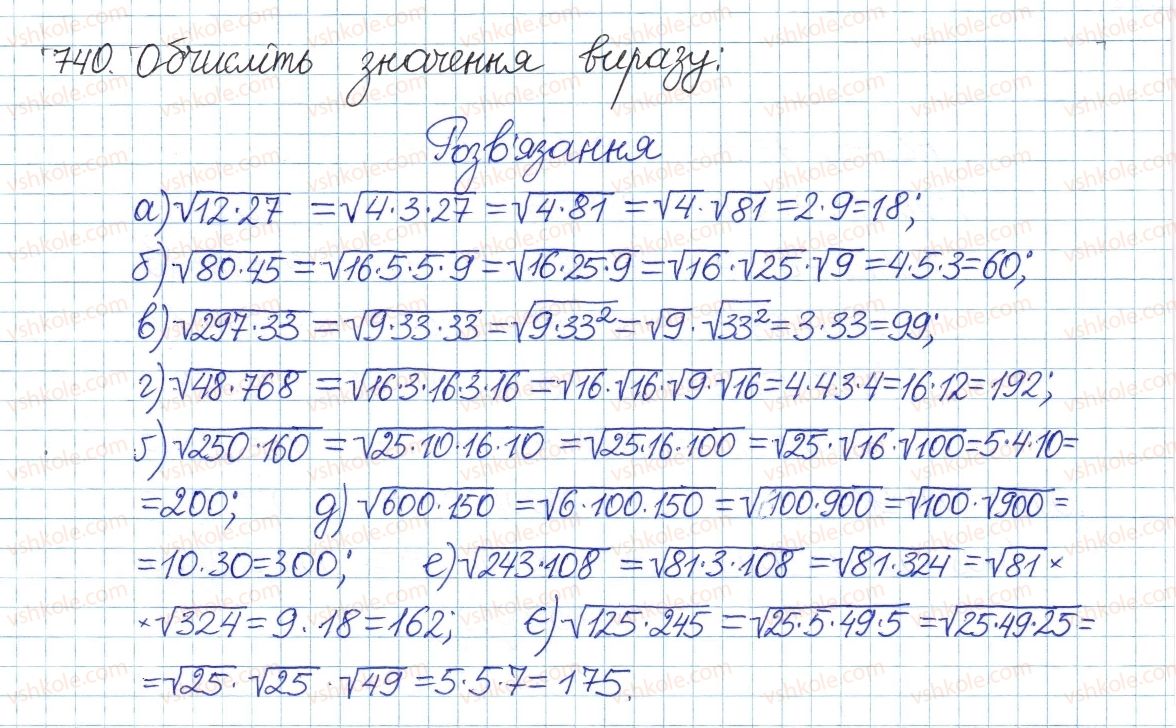 740. Обчисліть значення виразу:
Розв'язання
а) √12·27 = √4·3·27 = √4·81 = √4·√81 = 2·9 = 18;
б) √80·45 = √16·5·5·9 = √16·25·9 = √16·√25·√9 = 4·5·3 = 60;
в) √297·33 = √9·33·33 = √9·33² = √9·√33² = 3·33 = 99;
г) √48·768 = √16·3·16·3·16 = √16·√16·√9·√16 = 4·4·3·4 = 16·12 = 192;
ґ) √250·160 = √25·10·16·10 = √25·16·100 = √25·√16·√100 = 5·4·10 =
= 200; д) √600·150 = √6·100·150 = √100·900 = √100·√900 =
= 10·30 = 300; е) √243·108 = √81·3·108 = √81·324 = √81 ×
× √324 = 9·18 = 162; є) √125·245 = √25·5·49·5 = √25·49·25 =
= √25·√25·√49 = 5·5·7 = 175.
vshkole.com